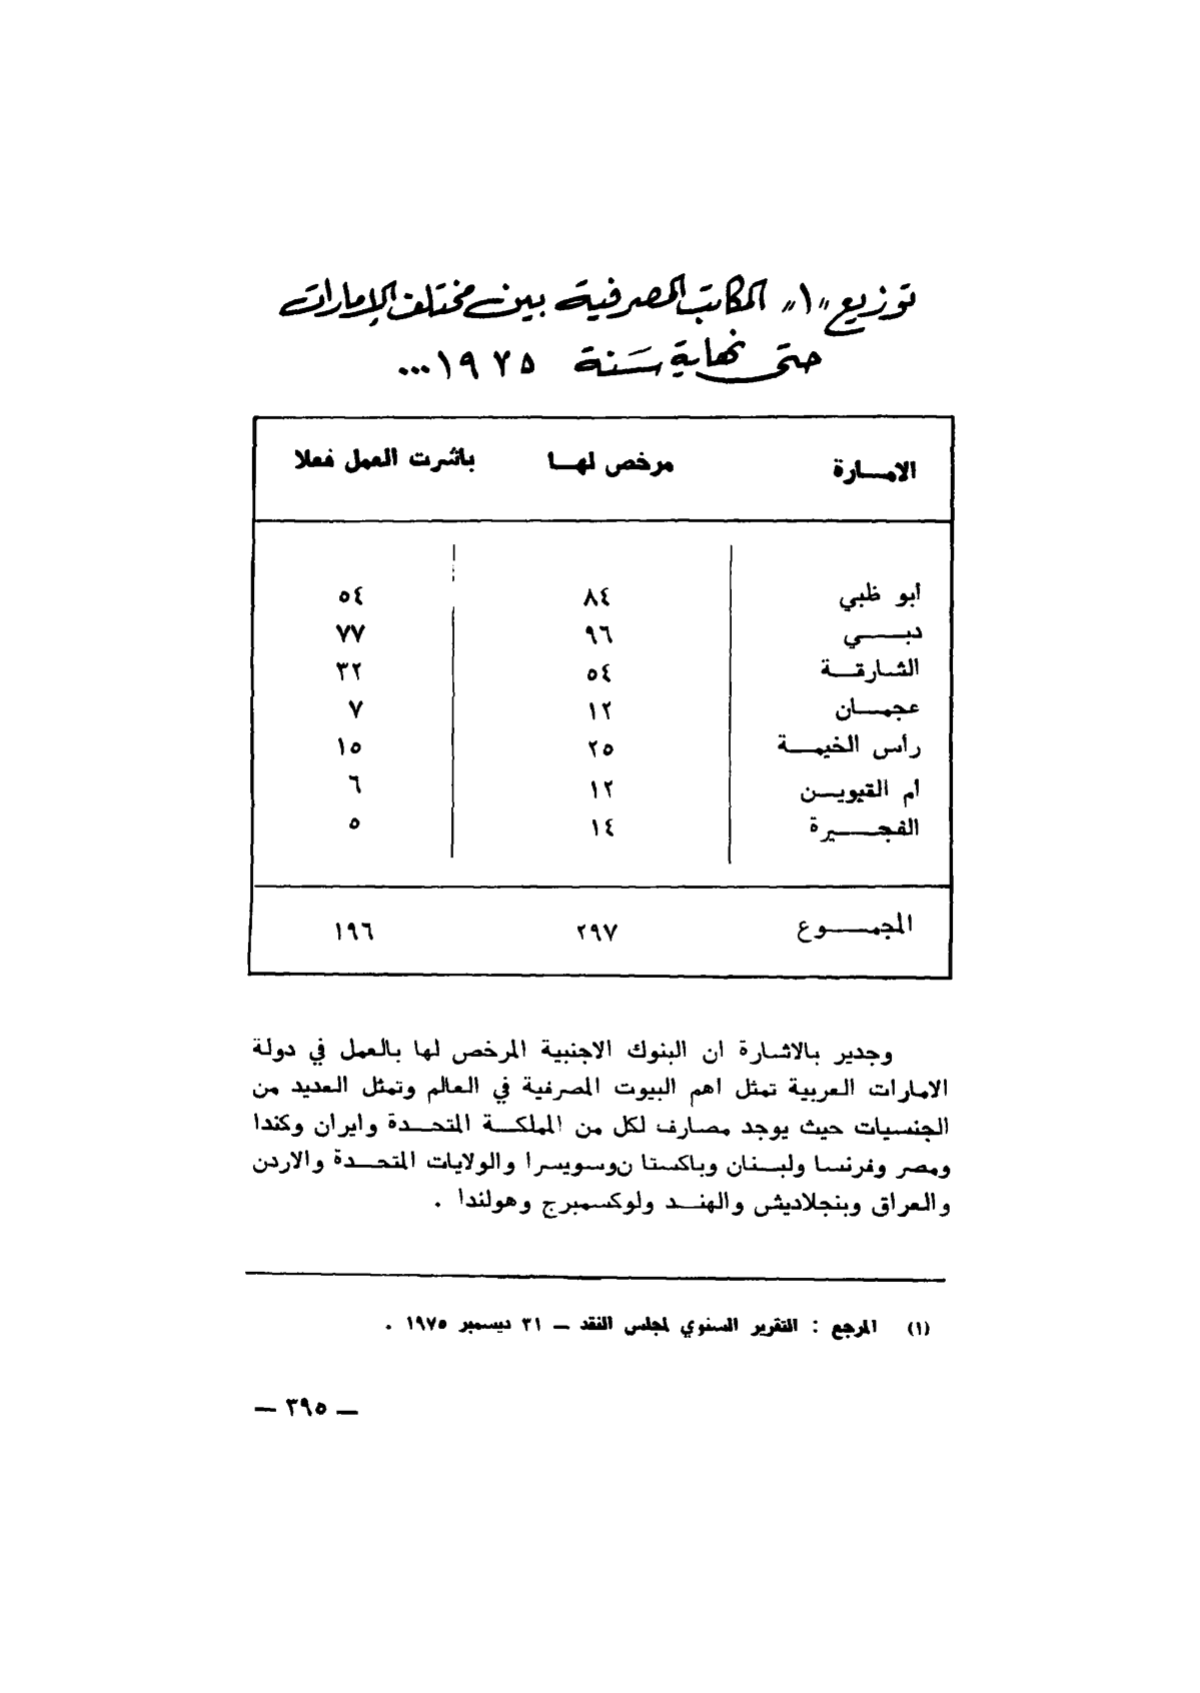 توزيع "١" المكاتب المصرفية بين مختلف الإمارات
حتى نهاية سَنة ١٩٧٥...
الامـــارة مرخص لهـــا باشرت العمل فعلا
أبو ظبي ٨٤ ٥٤
دبـــــي ٩٦ ٧٧
الشارقـــة ٥٤ ٣٢
عجمـــان ١٢ ٧
رأس الخيمـــة ٢٥ ١٥
ام القيويـــن ١٢ ٦
الفجـــــيرة ١٤ ٥
المجمـــــوع ٢٩٧ ١٩٦
وجدير بالاشارة ان البنوك الاجنبية المرخص لها بالعمل في دولة
الامارات العربية تمثل اهم البيوت المصرفية في العالم وتمثل العديد من
الجنسيات حيث يوجد مصارف لكل من المملكـــة المتحـــدة وايران وكندا
ومصر وفرنسا ولبـــنان وباكستا ن وسويسرا والولايات المتحـــدة والاردن
والعراق وبنجلاديش والهنـــد ولوكسمبرج وهولندا .
(١) المرجع : التقرير السنوي لمجلس النقد ــ ٣١ ديسمبر ١٩٧٥ .
ــ ٣٩٥ ــ